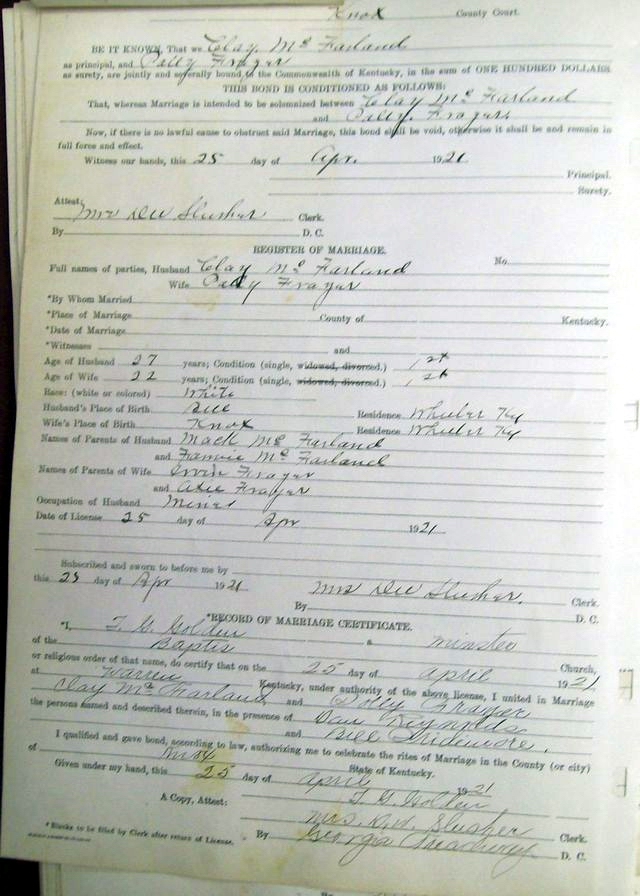 Knox County Court.
BE IT KNOWN, That we Clay. Mc Farland
as principal, and Polly Frazer
as surety, are jointly and severally bound to the Commonwealth of Kentucky, in the sum of ONE HUNDRED DOLLARS
THIS BOND IS CONDITIONED AS FOLLOWS:
That, whereas Marriage is intended to be solemnized between Clay Mc Farland
and Polly. Frazer.
Now, if there is no lawful cause to obstruct said Marriage, this bond shall be void, otherwise it shall be and remain in
full force and effect.
Witness our hands, this 25 day of Apr. 1921
Principal.
Surety.
Attest:
Mrs Dee Slusher Clerk.
By D. C.
REGISTER OF MARRIAGE.
No.
Full names of parties, Husband Clay Mc Farland
Wife Polly Frazer
*By Whom Married
*Place of Marriage County of Kentucky.
*Date of Marriage
*Witnesses and
Age of Husband 27 years; Condition (single, widowed, divorced.) 1st
Age of Wife 22 years; Condition (single, widowed, divorced.) 1st
Race: (white or colored) White
Husband's Place of Birth Bell Residence Wheeler Ky
Wife's Place of Birth Knox Residence Wheeler Ky
Names of Parents of Husband Mack Mc Farland
and Fannie Mc Farland
Names of Parents of Wife Ervin Frazer
and Frazer
Occupation of Husband Miner
Date of License 25 day of Apr 1921
Subscribed and sworn to before me by
this 25 day of Apr 1921 Mrs Dee Slusher. Clerk.
By D. C.
*RECORD OF MARRIAGE CERTIFICATE.
*I, T. G. Golden a minster
of the Baptis Church,
or religious order of that name, do certify that on the 25 day of April 1921
at Warren Kentucky, under authority of the above license, I united in Marriage
Clay Mc Farland and Polly Frazer
the persons named and described therein, in the presence of Dan Reynolds
and Bill
I qualified and gave bond, according to law, authorizing me to celebrate the rites of Marriage in the County (or city)
of Knox State of Kentucky.
Given under my hand, this 25 day of April 1921
T. G. Golden
A Copy, Attest: Mrs. D.W. Slusher Clerk.
By Georgia Treadway D. C.
*Blanks to be filed by Clerk after return of License.